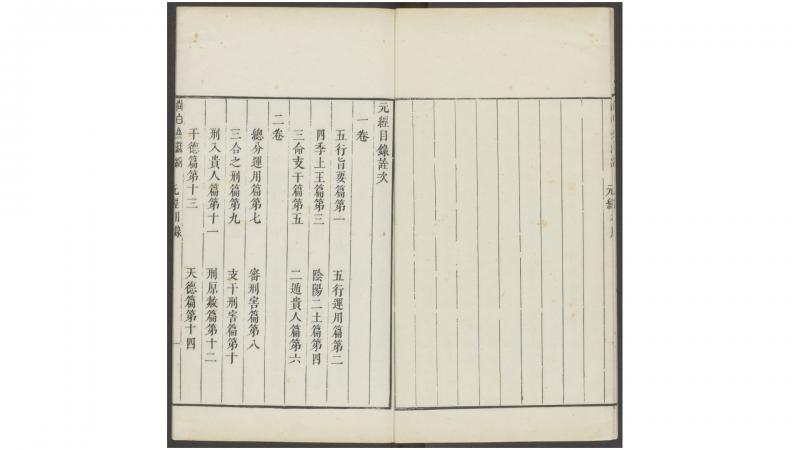 元經目錄詮次
一卷
五行旨要篇第一　五行運用篇第二
四季土王篇第三　陰陽二土篇第四
三命支干篇第五　二遁貴人篇第六
二卷
總分運用篇第七　審刑害篇第八
三合之刑篇第九　支干刑害篇第十
刑入貴人篇第十一　刑原赦篇第十二
干德篇第十三　天德篇第十四
元經目錄